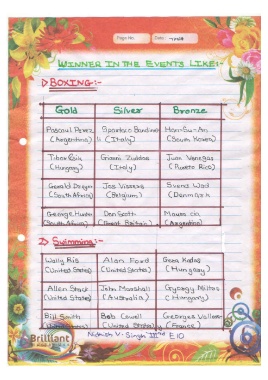 Page No.
Date:
WINNER IN THE EVENTS LIKE:-
BOXING:-
Gold Silver Bronze
Pascual Perez Spartaco Bandinel Han-Su-An
(Argentina) (Italy) (South Korea)
Tibor Csik Giovani Zuddas Juan Venegas
(Hungary) (Italy) (Puerto Rico)
Gerald Dreyer Jos Vissers Svend Wad
(South Africa) (Belgium) (Denmark)
George Hunter Don Scott Mauro cia
(South Africa) (Great Britain) (Argentina)
2) Swimming:-
Wally Ris Alan Ford Geza Kadas
(United States) (United States) (Hungary)
Allen Stack John Marshall Gyorgy Mitro
(United States) (Australia) (Hungary)
Bill Smith Bob Cowell Georges Vallerey
(United States) (United States) (France)
Singh
E10
Brilliant